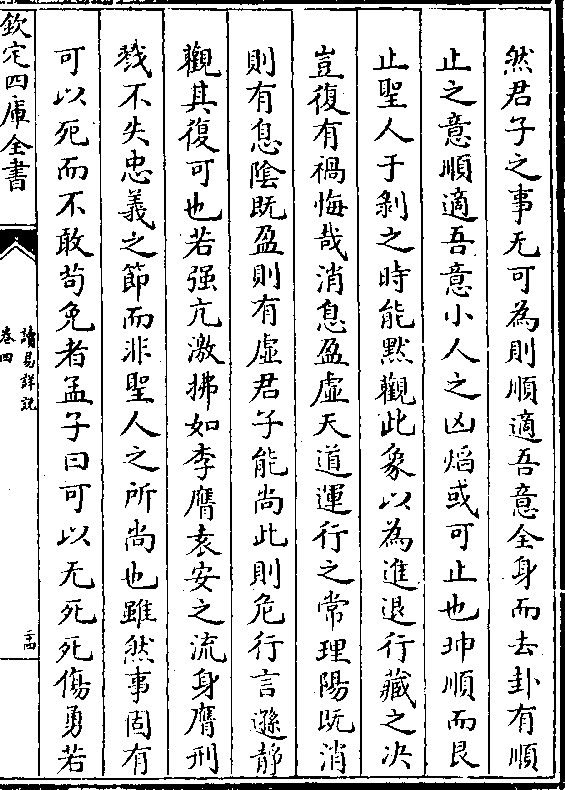 然君子之事无可為則順適吾意全身而去卦有順
止之意順適吾意小人之凶焰或可止也坤順而艮
止聖人于剝之時能默觀此象以為進退行藏之决
豈復有禍悔哉消息盈虛天道運行之常理陽既消
則有息陰既盈則有虛君子能尚此則危行言遜靜
觀其復可也若强亢激拂如李膺袁安之流身膺刑
戮不失忠義之節而非聖人之所尚也雖然事固有
可以死而不敢苟免者孟子曰可以无死死傷勇若
欽定四庫全書
讀易詳說
卷四
二十四